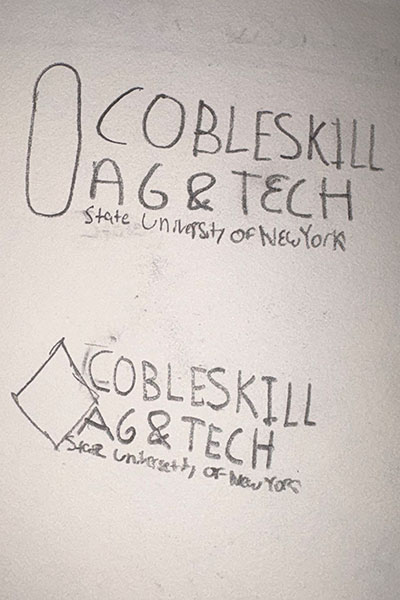 COBLESKILL
AG & TECH
State University of New York
COBLESKILL
AG & TECH
State Universetity of New York